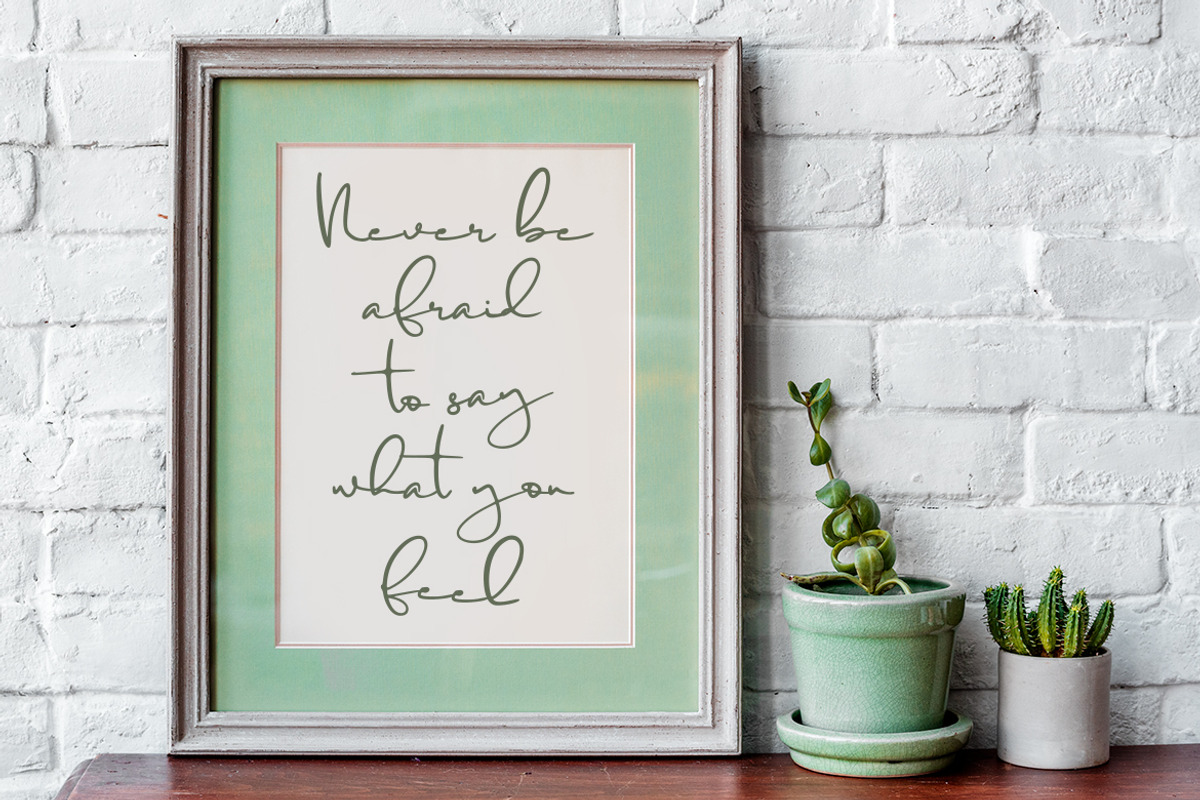 Never be
afraid
to say
what you
feel